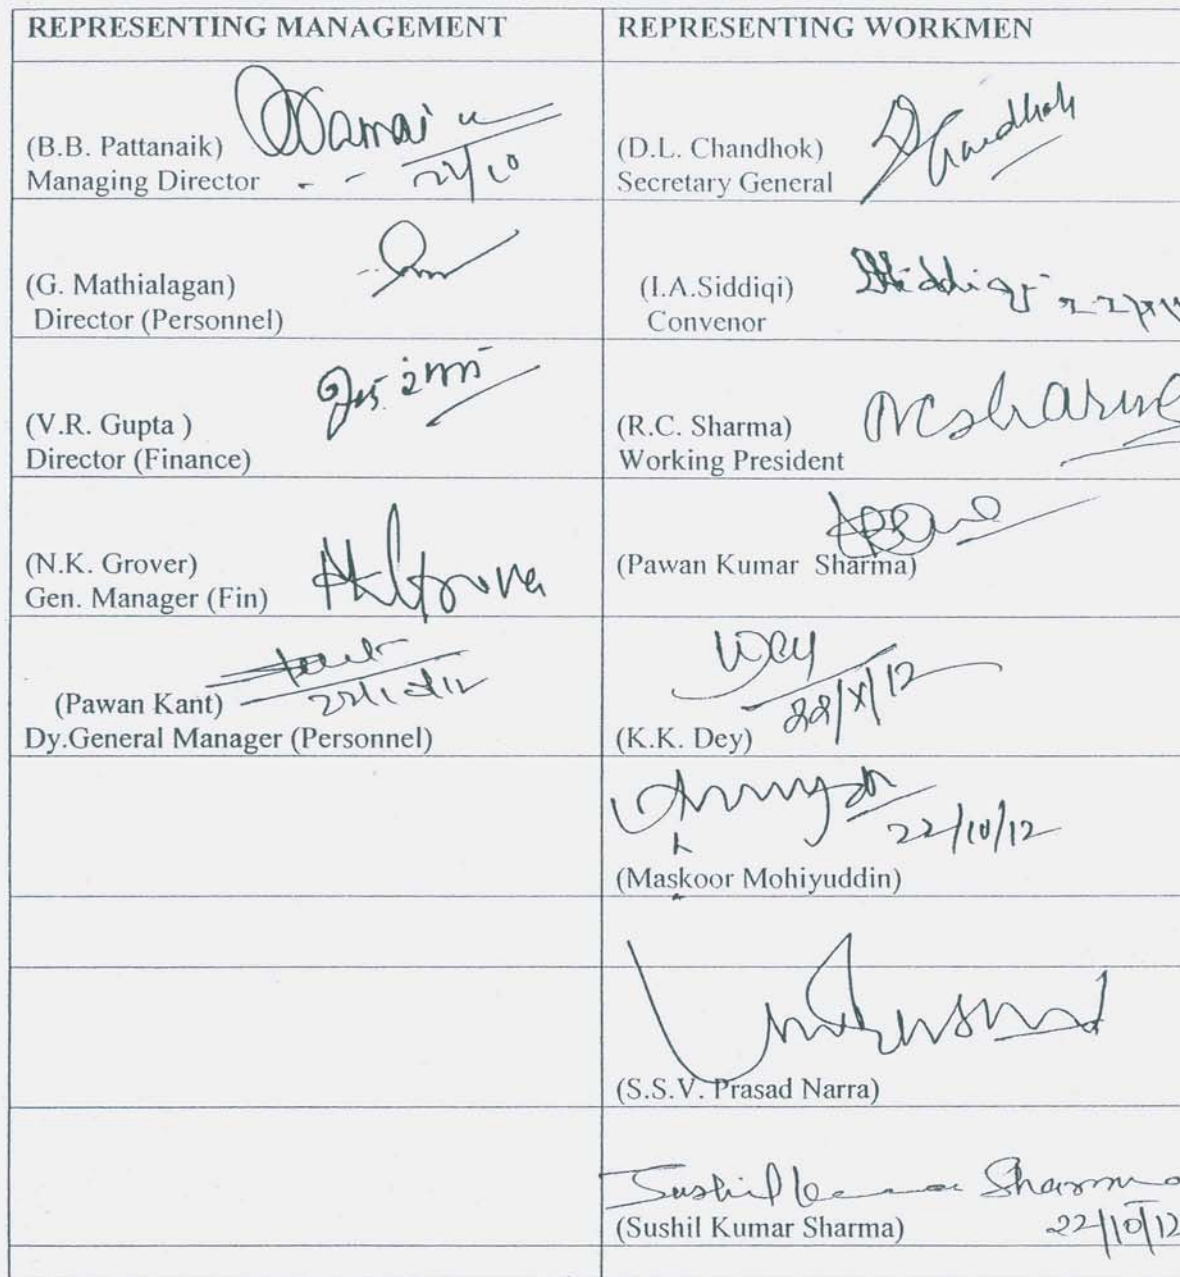 REPRESENTING MANAGEMENT
REPRESENTING WORKMEN
(B.B. Pattanaik)
Managing Director
22/10
(D.L. Chandhok)
Secretary General
Chandhok
(G. Mathialagan)
Director (Personnel)
(I.A.Siddiqi)
Convenor
Siddiqi
(V.R. Gupta )
Director (Finance)
(R.C. Sharma)
Working President
RCSharma
(N.K. Grover)
Gen. Manager (Fin)
NKGrover
(Pawan Kumar Sharma)
(Pawan Kant)
22/10/12
Dy.General Manager (Personnel)
Dey
22/X/12
(K.K. Dey)
22/10/12
k
(Maskoor Mohiyuddin)
(S.S.V. Prasad Narra)
Sushil Kumar Sharma
(Sushil Kumar Sharma)
22/10/12